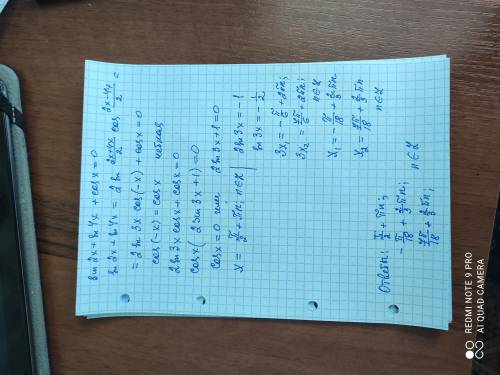 sin 2x + sin 4x + cos x = 0
sin 2x + sin 4x = 2 sin (2x+4x)/2 cos (2x-4x)/2 =
= 2 sin 3x cos(-x) + cos x = 0
cos(-x) = cos x чётная
2 sin 3x cos x + cos x = 0
cos x (2 sin 3x + 1) = 0
cos x = 0 или 2 sin 3x + 1 = 0
x = π/2 + πn; n∈Z | 2 sin 3x = -1
sin 3x = -1/2
3x₁ = -π/6 + 2πn;
3x₂ = 7π/6 + 2πn; n∈Z
x₁ = -π/18 + 2/3 πn
x₂ = 7π/18 + 2/3 πn n∈Z
Ответ: π/2 + πn;
-π/18 + 2/3 πn; n∈Z
7π/18 + 2/3 πn;
REDMI NOTE 9 PRO
AI QUAD CAMERA